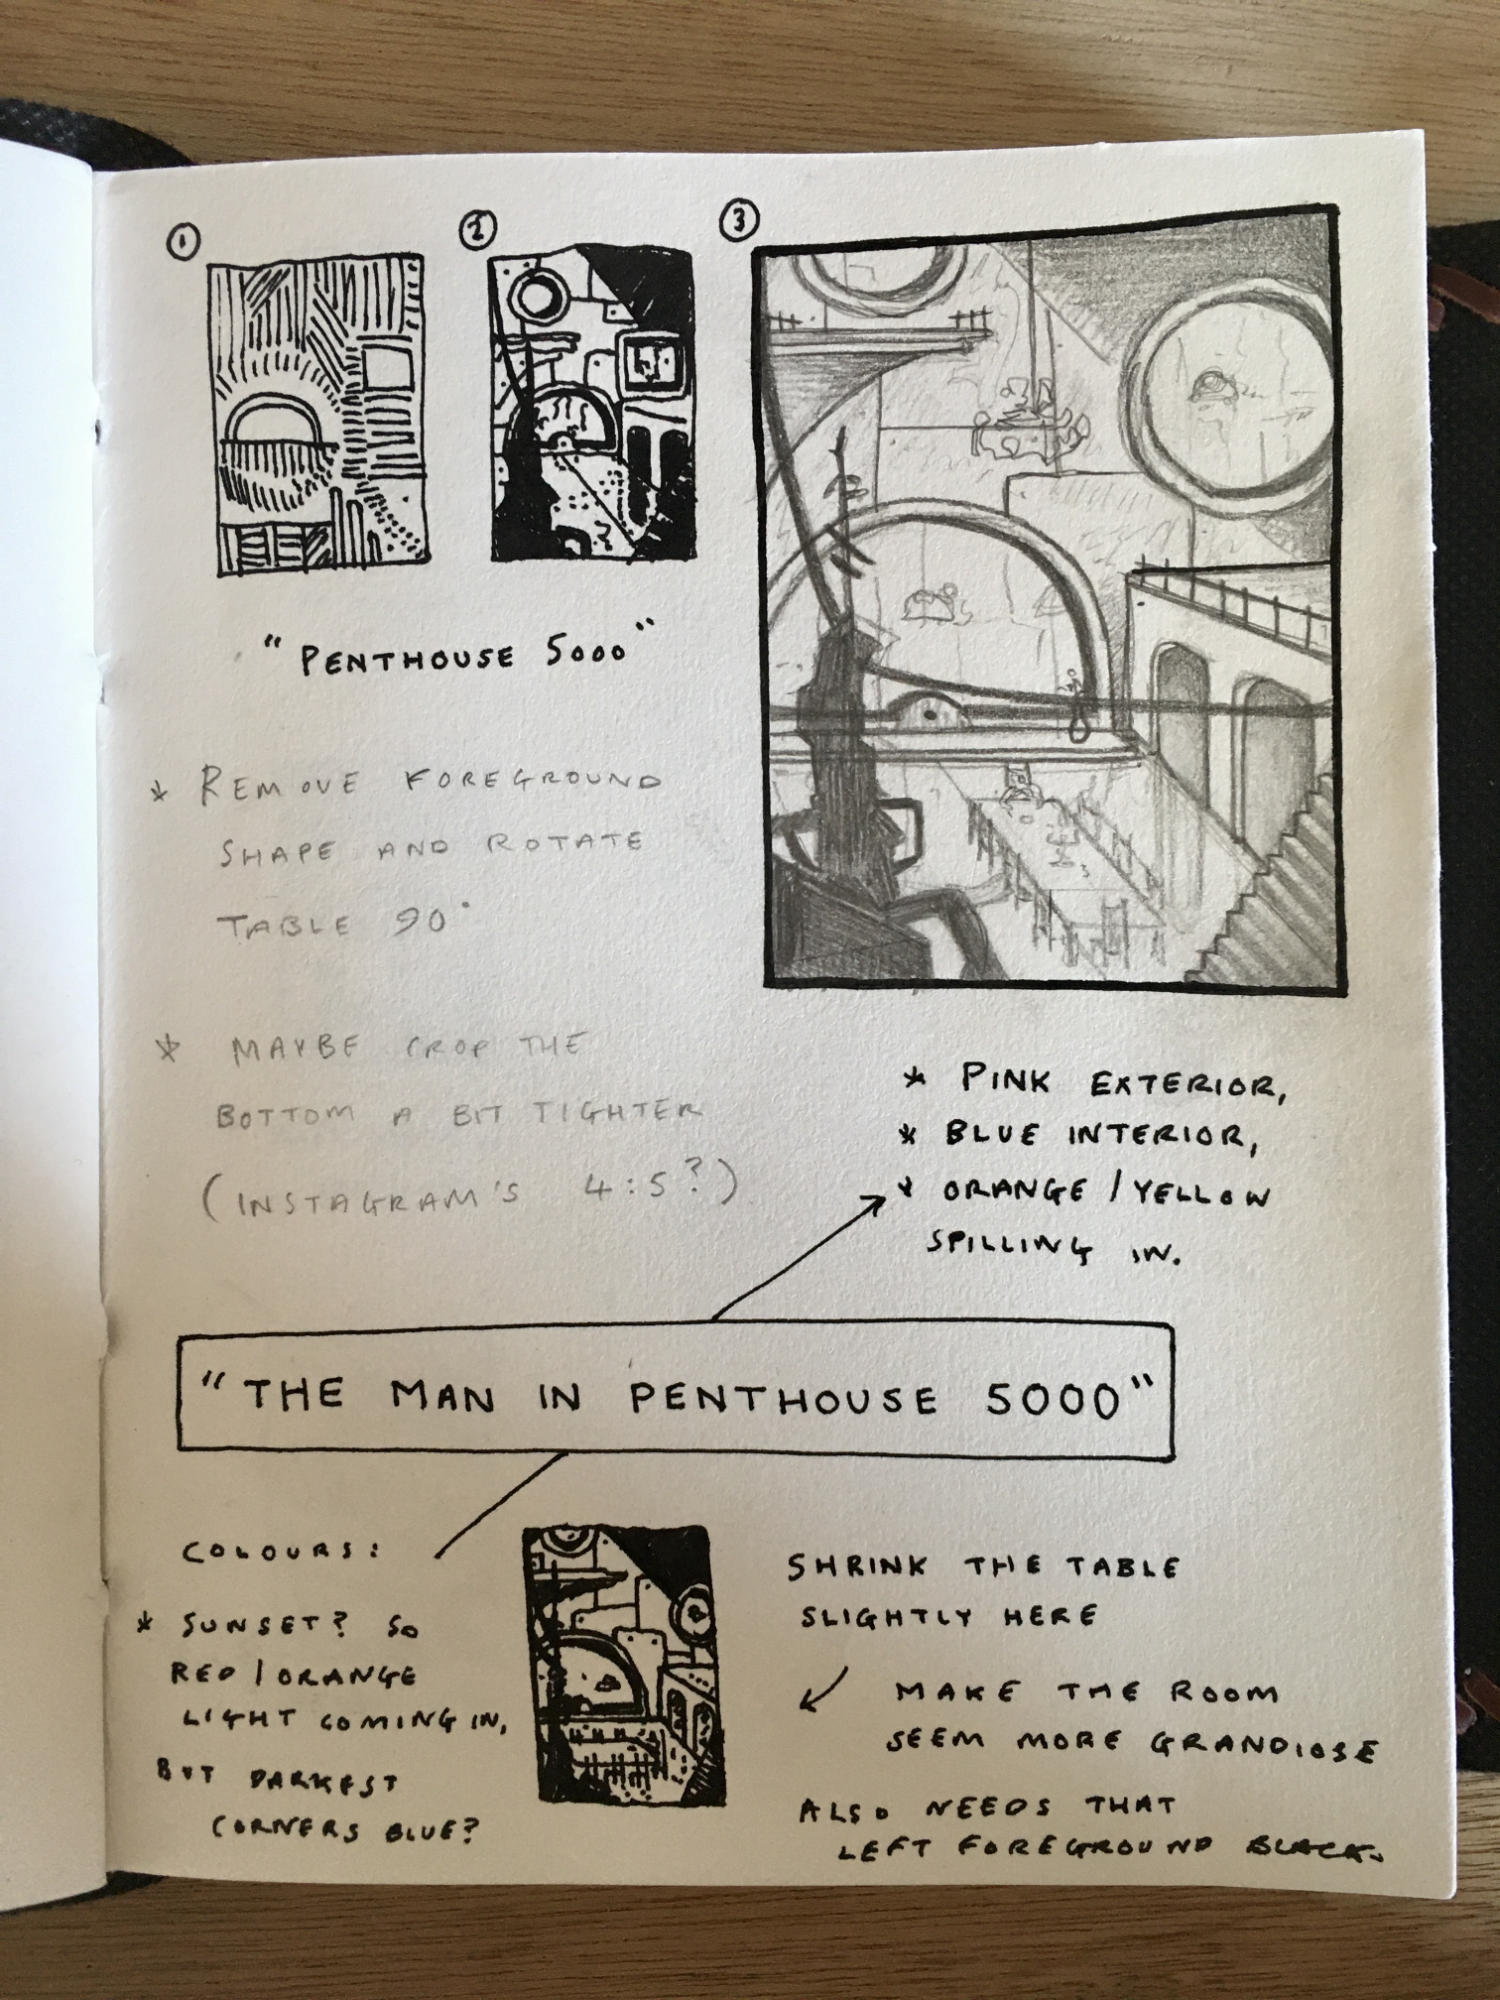 1
2
3
"PENTHOUSE 5000"
* REMOVE FOREGROUND
SHAPE AND ROTATE
TABLE 90°
* MAYBE CROP THE
BOTTOM A BIT TIGHTER
(INSTAGRAM'S 4:5?)
* PINK EXTERIOR,
* BLUE INTERIOR,
* ORANGE/YELLOW
SPILLING IN.
"THE MAN IN PENTHOUSE 5000"
COLOURS:
* SUNSET? SO
RED/ORANGE
LIGHT COMING IN,
BUT DARKEST
CORNERS BLUE?
SHRINK THE TABLE
SLIGHTLY HERE
MAKE THE ROOM
SEEM MORE GRANDIOSE
ALSO NEEDS THAT
LEFT FOREGROUND BLACK.